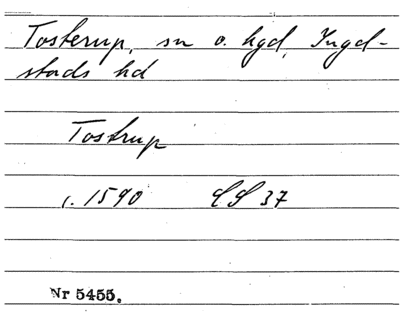 Tosterup, sn o. hgd, Ingel-
stads hd
Tostrup
c. 1590 LS 37
Nr 5455.